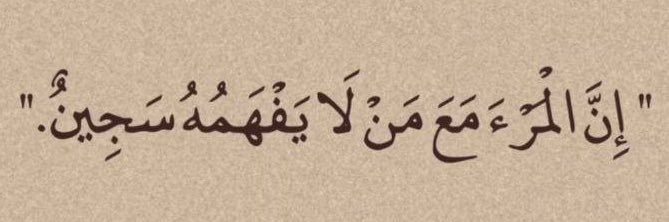 " إِنَّ الْمَرْءَ مَعَ مَنْ لَا يَفْهَمُهُ سَجِينٌ."